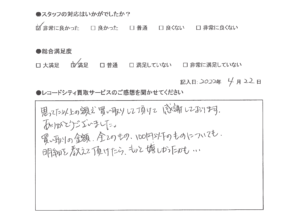 ●スタッフの対応はいかがでしたか？
☑非常に良かった □良かった □普通 □良くない □非常に良くない
●総合満足度
□大満足 ☑満足 □普通 □満足していない □非常に満足していない
記入日 2022年 4月 22日
●レコードシティ買取サービスのご感想を聞かせてください
思った以上の額で買い取りして頂けて感謝しております。
ありがとうございました。
買い取りの金額、全てのもの、100円以下のものについても、
明細を教えて頂けたら、もっと嬉しかったかも…